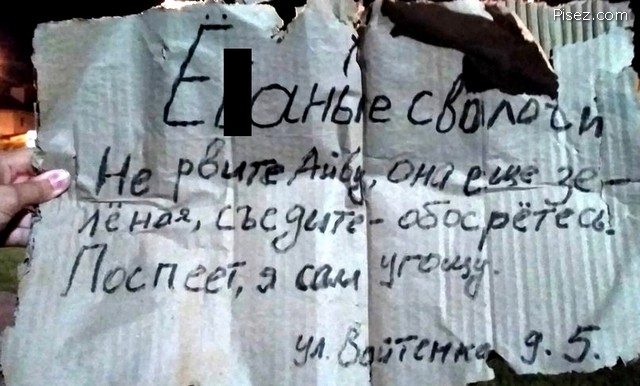 Pisez.com
Ё аные сволочи
Не рвите Айву, она еще зе-
лёная, съедите- обосрётесь.
Поспеет, я сам угощу.
ул. Войтенко д. 5.